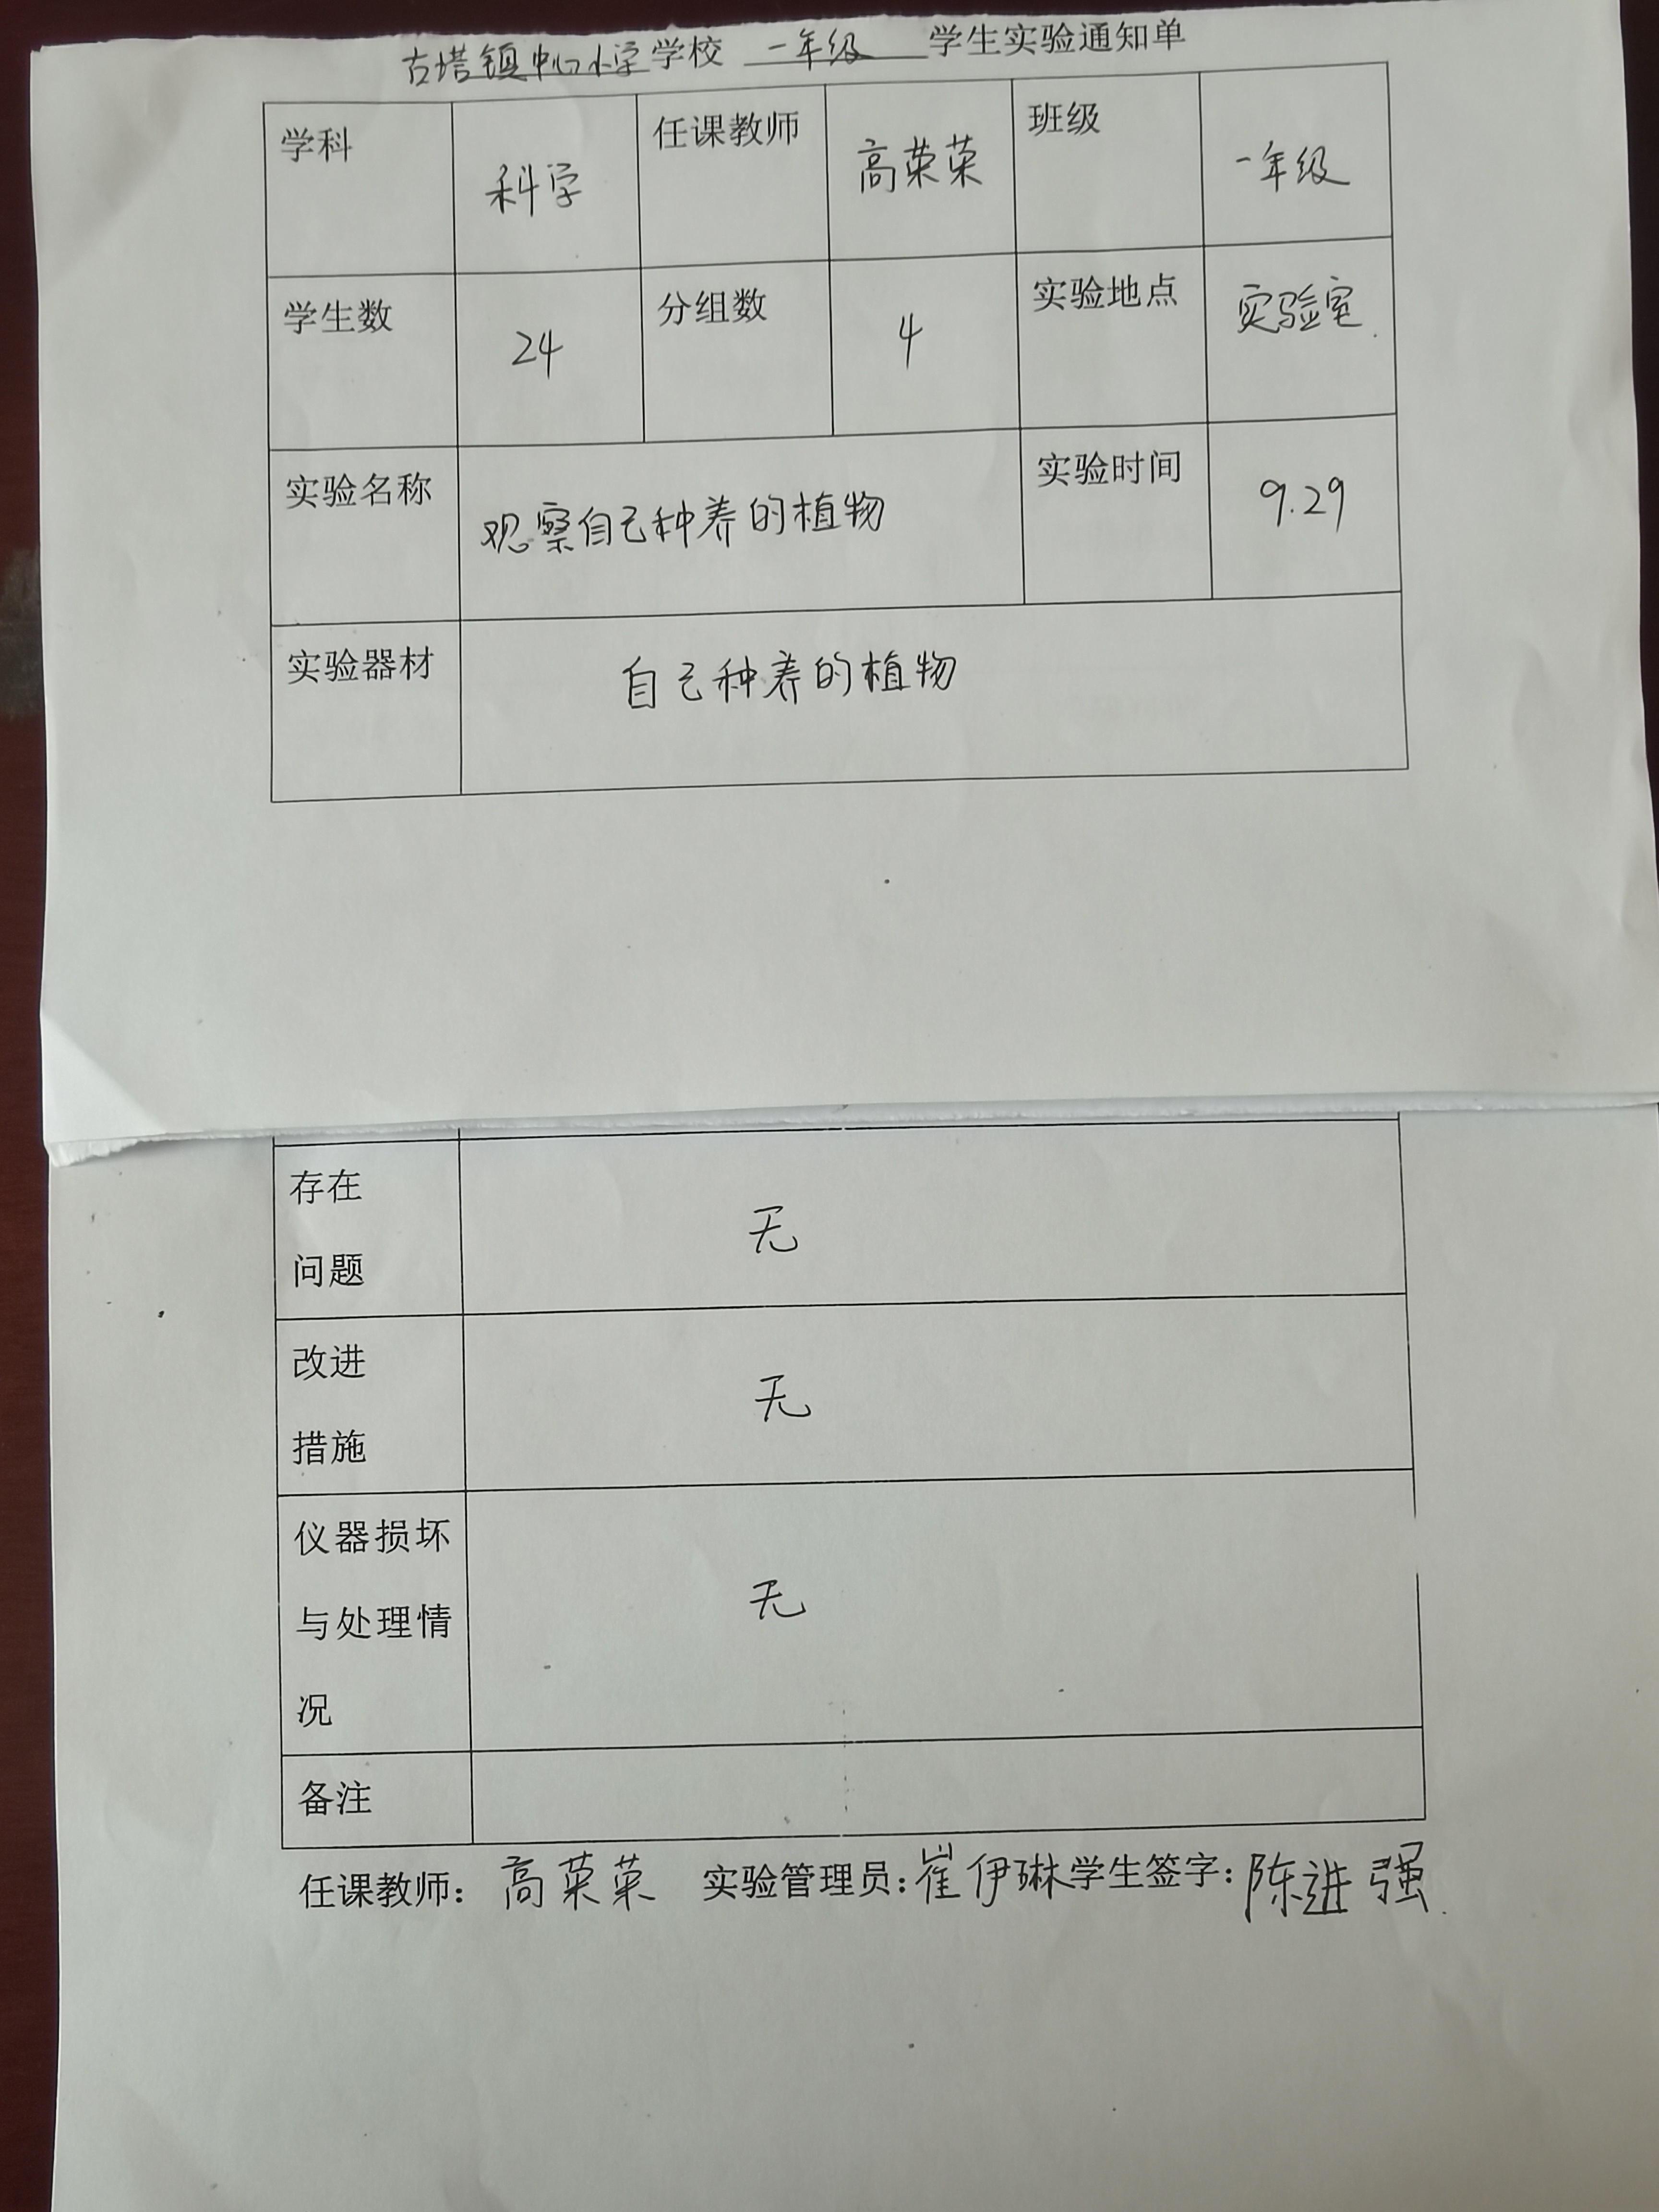 古塔镇中心小学学校 一年级 学生实验通知单
学科 科学 任课教师 高荣荣 班级 一年级
学生数 24 分组数 4 实验地点 实验室
实验名称 观察自己种养的植物 实验时间 9.29
实验器材 自己种养的植物
存在
问题
无
改进
措施
无
仪器损坏
与处理情
况
无
备注
任课教师：高荣荣 实验管理员：崔伊琳 学生签字：陈进强